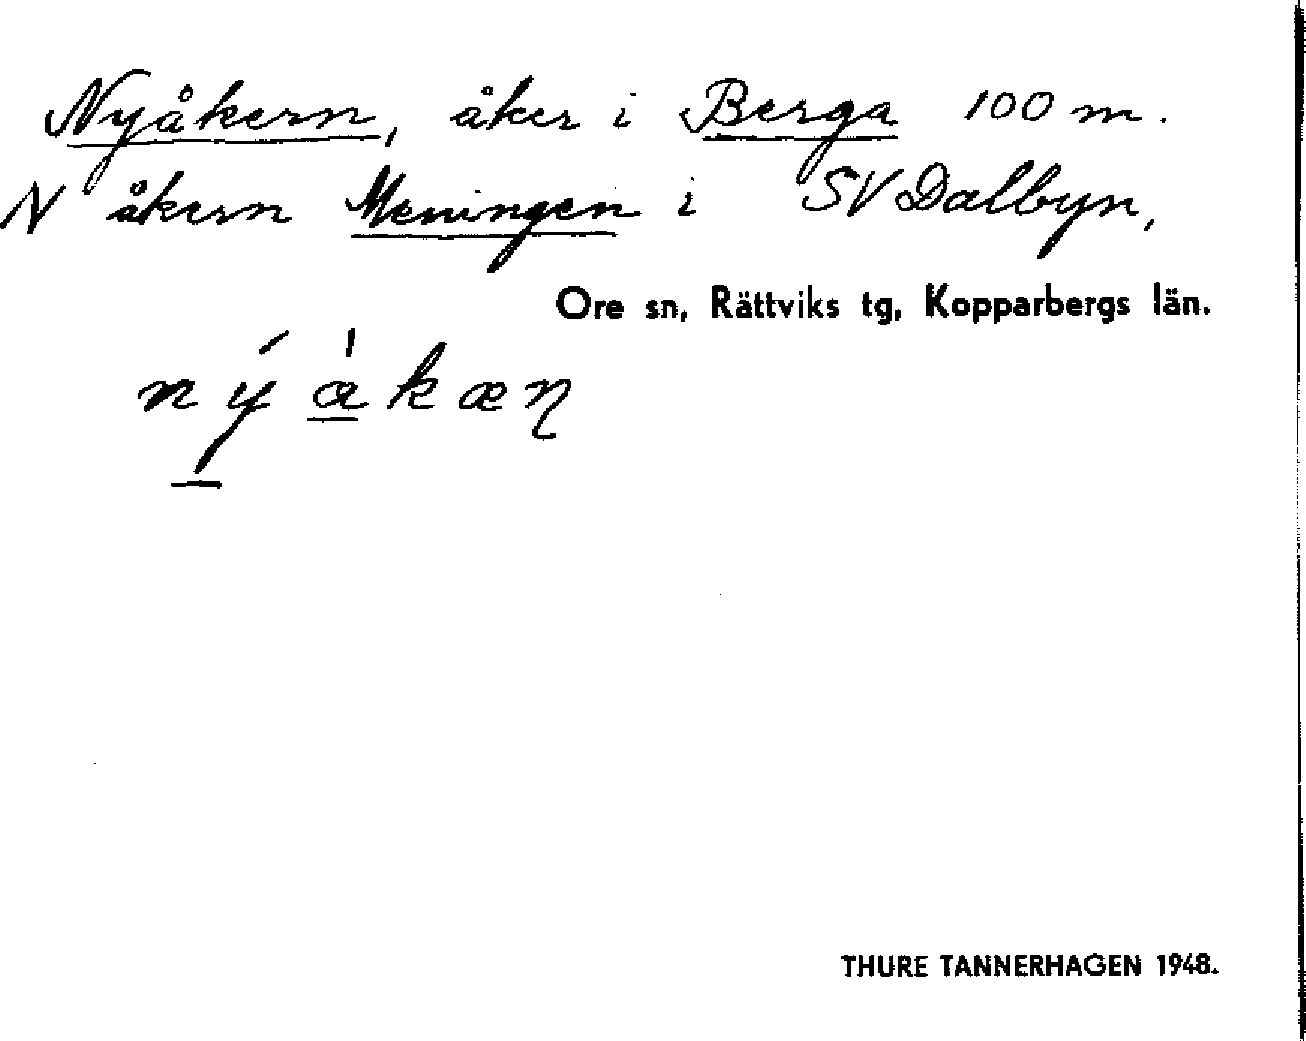 Nyåkern, åker i Berga 100 m.
N åkern Meningen i SV Dalbyn,
Ore sn, Rättviks tg, Kopparbergs län.
ný a̱̍kæn̡
THURE TANNERHAGEN 1948.